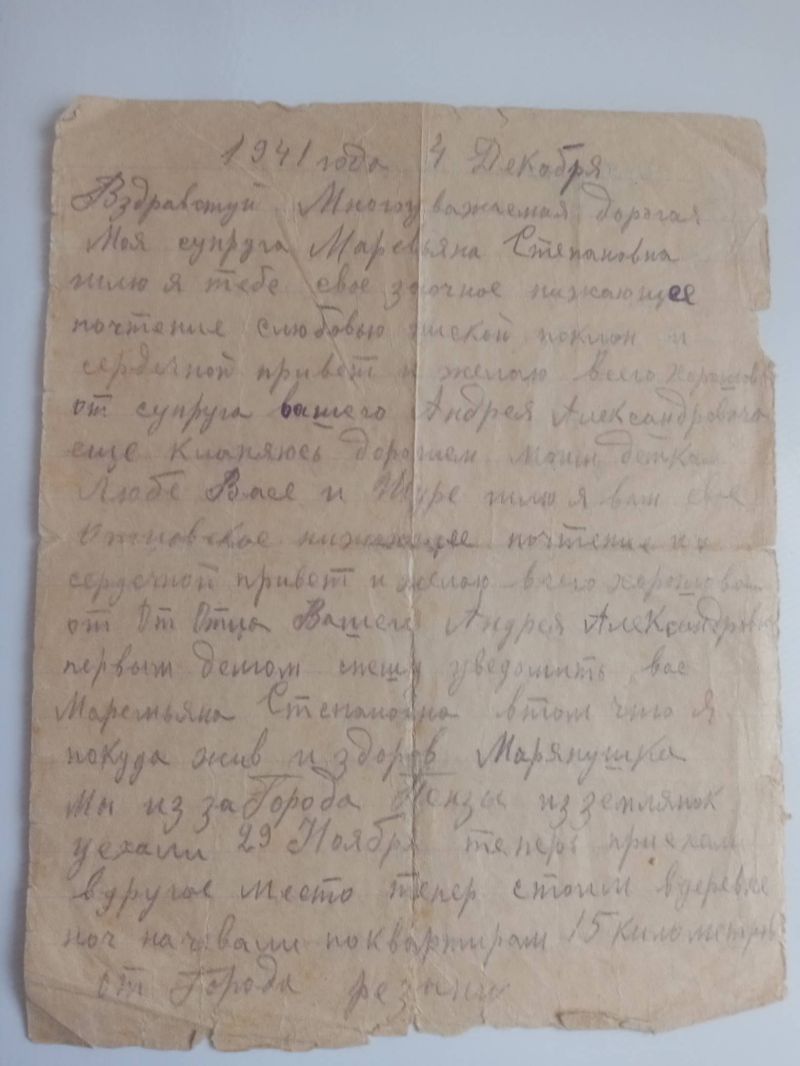 1941 года 4 Декабря
Вздравствуй Многоуважаемая дорогая
Моя супруга Маремьяна Степановна
шлю я тебе свое заочное нижающее
почтение слюбовью ниской поклон и
сердечной привет и желаю всего хорошова
от супруга вашего Андрея Александровича
еще кланяюсь дорогием моим деткам
Любе Васе и Шуре шлю я вам свое
Отцовское нижающее почтение и
сердечной привет и желаю всего хорошова
от От Отца Вашего Андрея Александровича
первым делом спешу уведомить вас
Маремьяна Степановна втом что я
покуда жив и здоров Маряпушка
Мы из за Города Пензы из землянок
уехали 29 Ноября теперь приехали
вдругое место тепер стоим вдеревне
ноч начовали поквартирам 15 километров
от Города резани